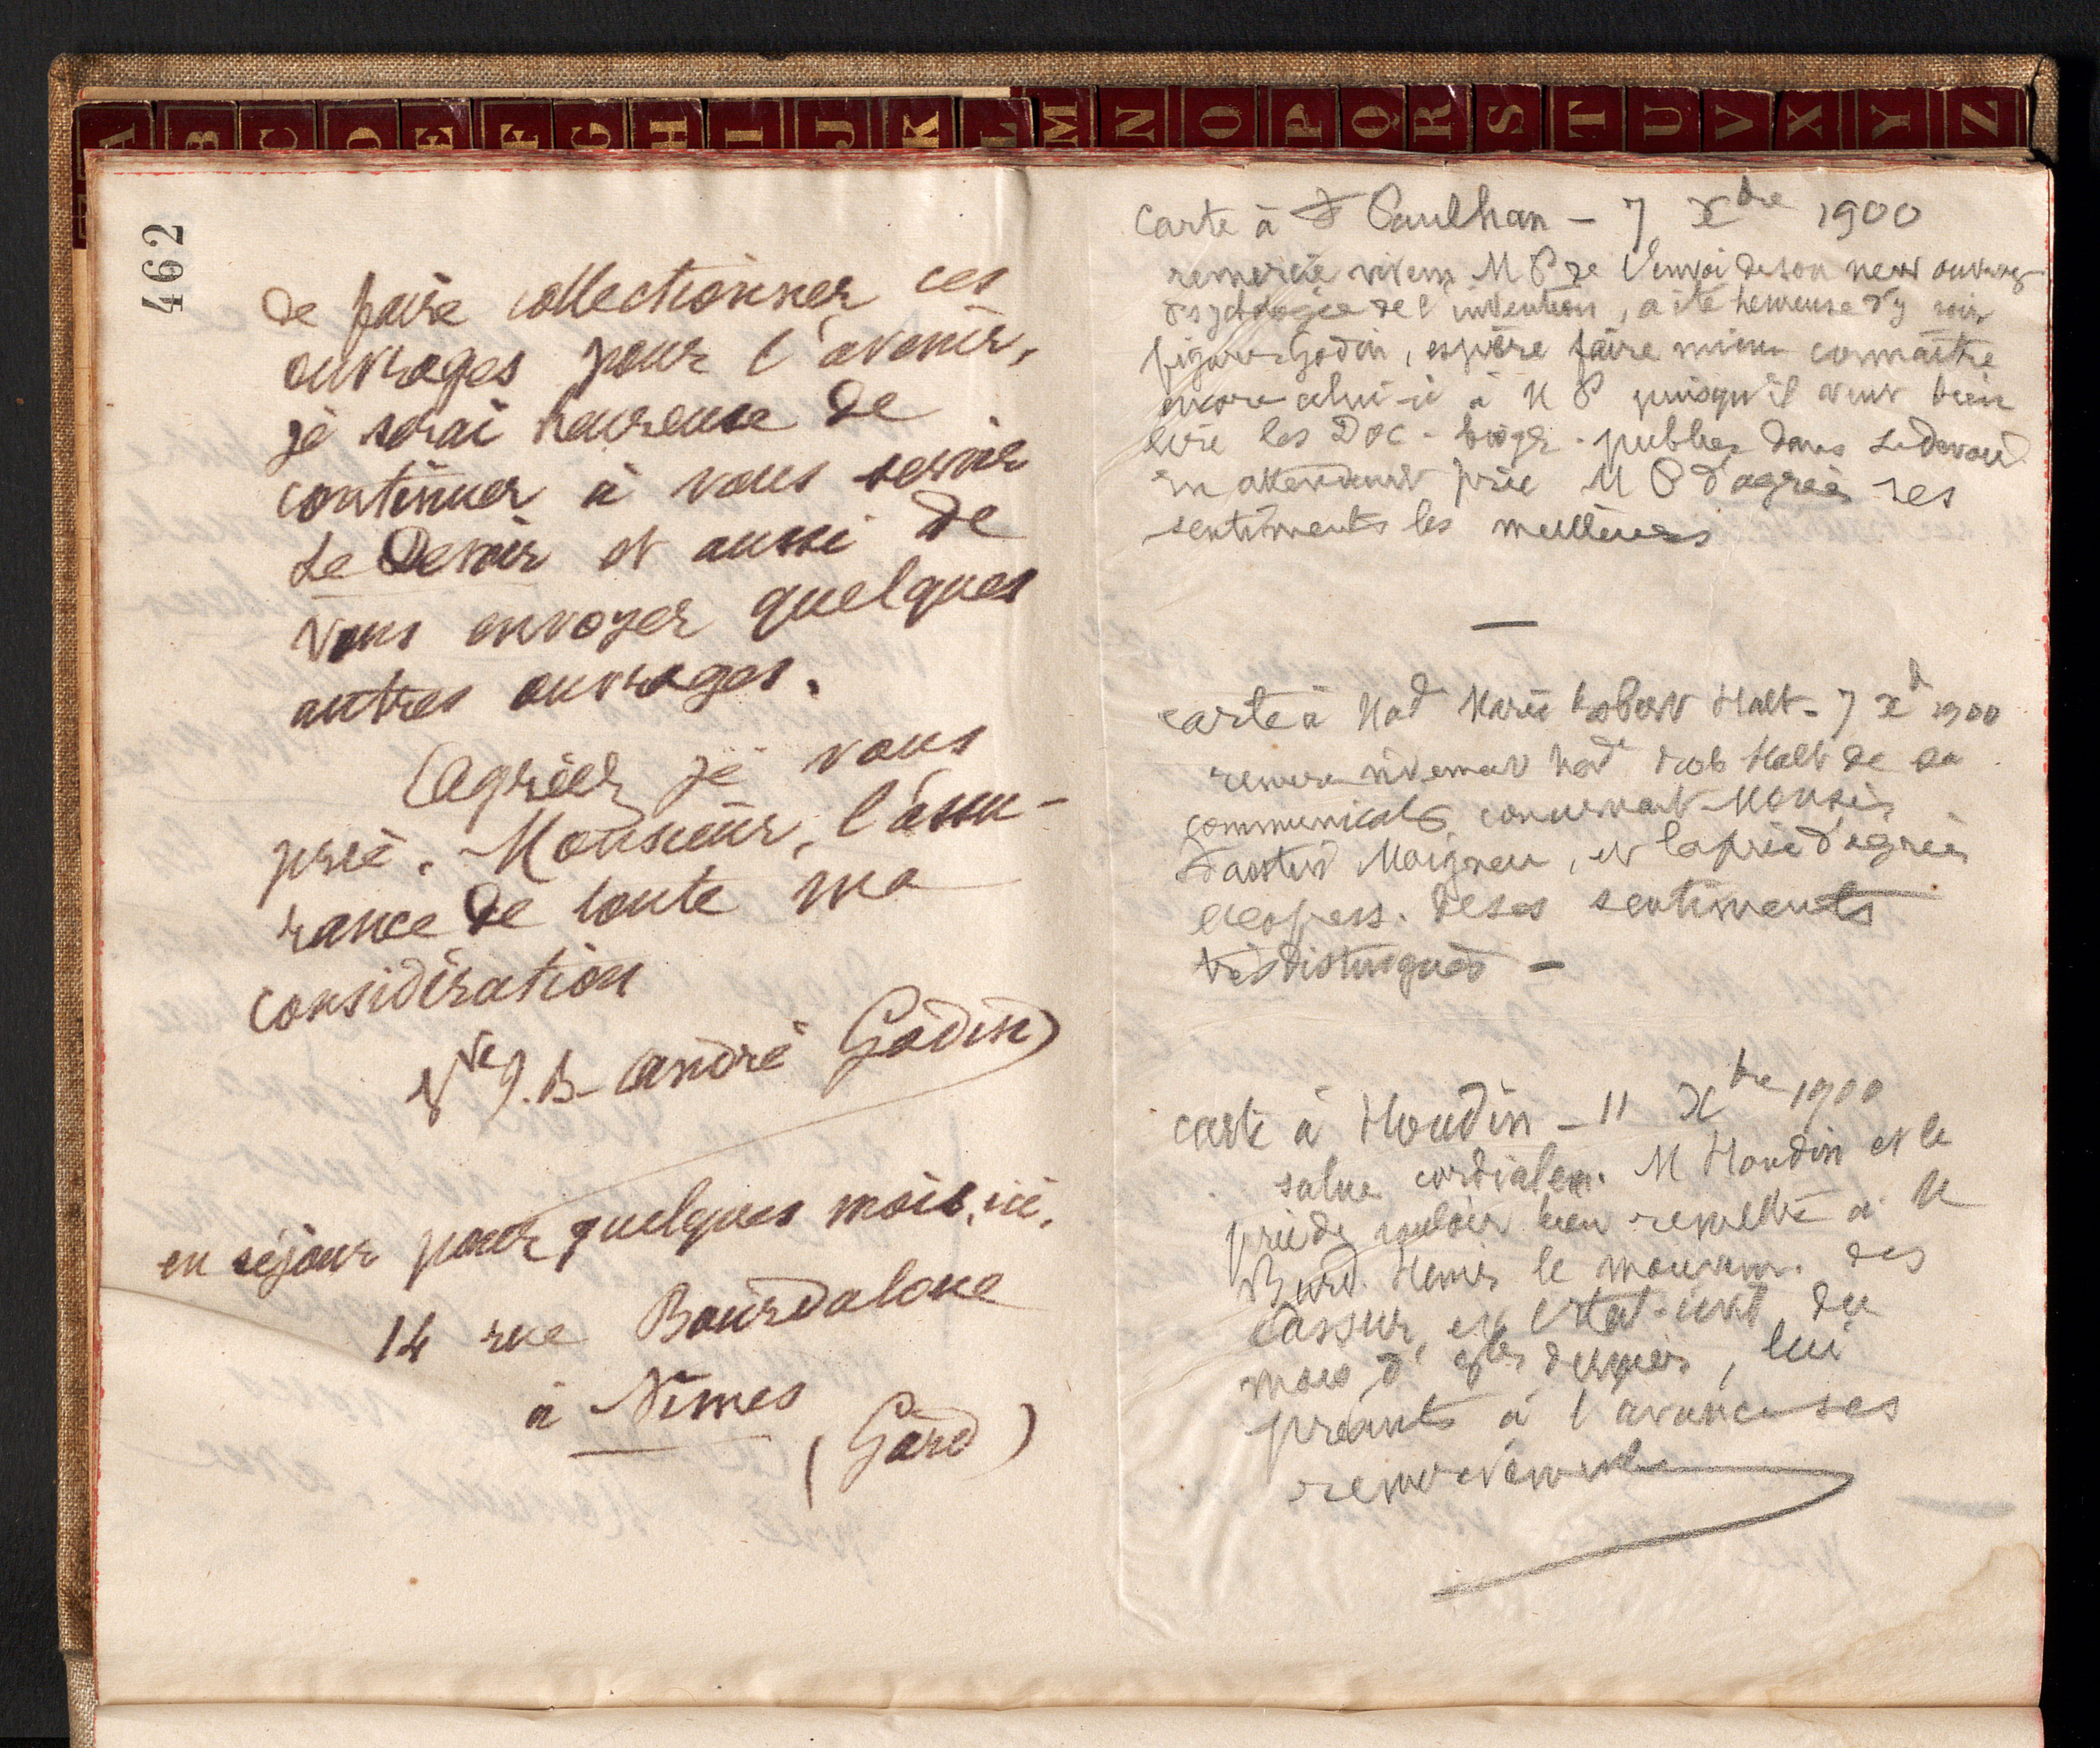 A B C D E F G H I J K L M N O P Q R S T U V X Y Z
462
de faire collectionner ces
ouvrages pour l'avenir,
je serai heureuse de
continuer à vous servir
Le Devoir et aussi de
vous envoyer quelques
autres ouvrages.
Agréez je vous
prie, Monsieur, l'assu-
rance de toute ma
considération
Vve J. B. André Godin
en séjour pour quelques mois, ici,
14 rue Bourdaloue
à Nîmes
(Gard)
Carte à F Paulhan - 7 Xbre 1900
remercie vivem. M P de l'envoi de son nouv ouvrag
psychologie de l'invention, a été heureuse d'y voir
figurer Godin, espère faire mieux connaître
encore celui-ci à M P puisqu'il veut bien
lire les Doc. biogr. publiés dans Le devoir
en attendant prie M P d'agréer ses
sentiments les meilleurs
Carte à Mad Marie Robert Halt - 7 Xb 1900
remercie vivement Made Rob Halt de sa
communicat concernant Monsier
Maigneu, et la prie d'agréer
l'express. de ses sentiments
très distingués -
Carte à Houdin - 11 Xbre 1900
salue cordialem. M Houdin et le
prie de vouloir bien remettre à M
Bernd. Henri le mouvem. des
assur et l'état-civil du
mois d' 8bre dernier, lui
présente à l'avance ses
remerciements